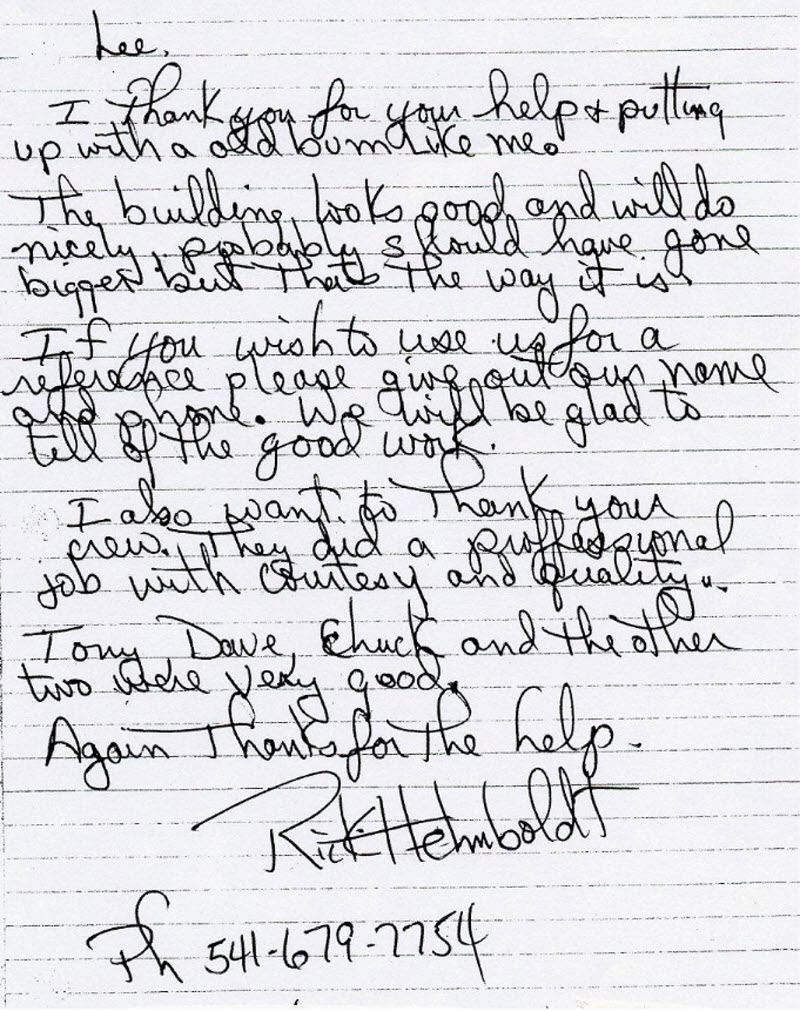 Lee.
I thank you for your help & putting
up with a old bum like me.
The building looks good and will do
nicely, probably should have gone
bigger but thats the way it is.
If you wish to use us for a
reference please give out our name
and phone. We will be glad to
tell of the good work.
I also want to thank your
crew. They did a proffessional
job with courtesy and quality.
Tony Dave, Chuck and the other
two were very good.
Again thanks for the help.
Rick Helmboldt
Ph 541-679-7754